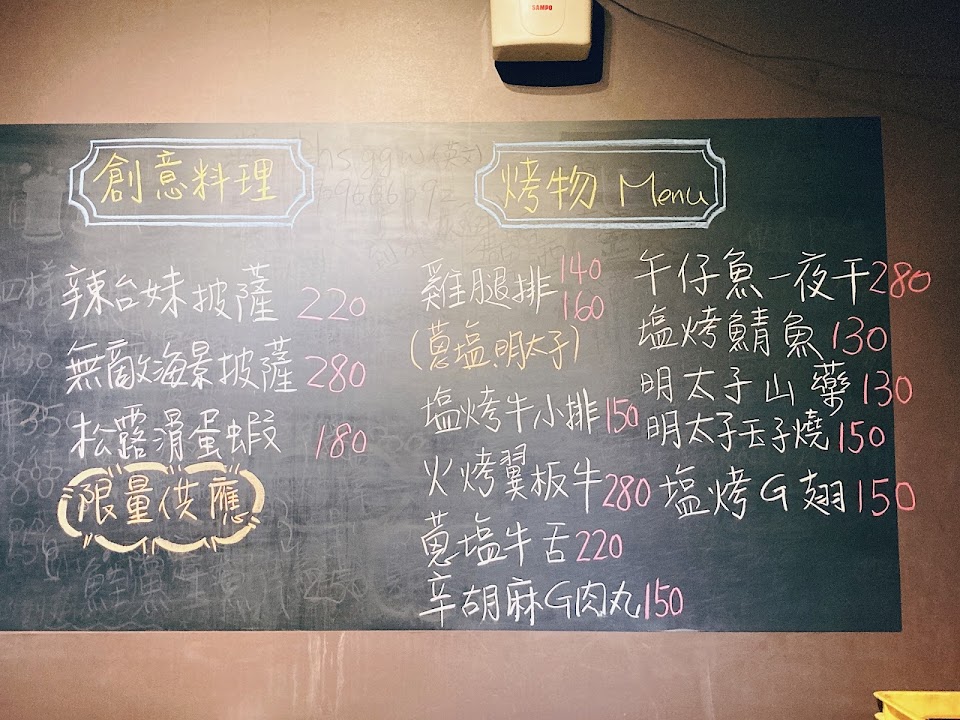 SAMPO
創意料理
辣台妹披薩 220
無敵海景披薩 280
松露滑蛋蝦 180
限量供應
烤物 Menu
雞腿排 140
160
(蔥塩.明太子)
塩烤牛小排 150
火烤翼板牛 280
蔥塩牛舌 220
辛胡麻G肉丸 150
午仔魚一夜干 280
塩烤鯖魚 130
明太子山藥 130
明太子玉子燒 150
塩烤G翅 150